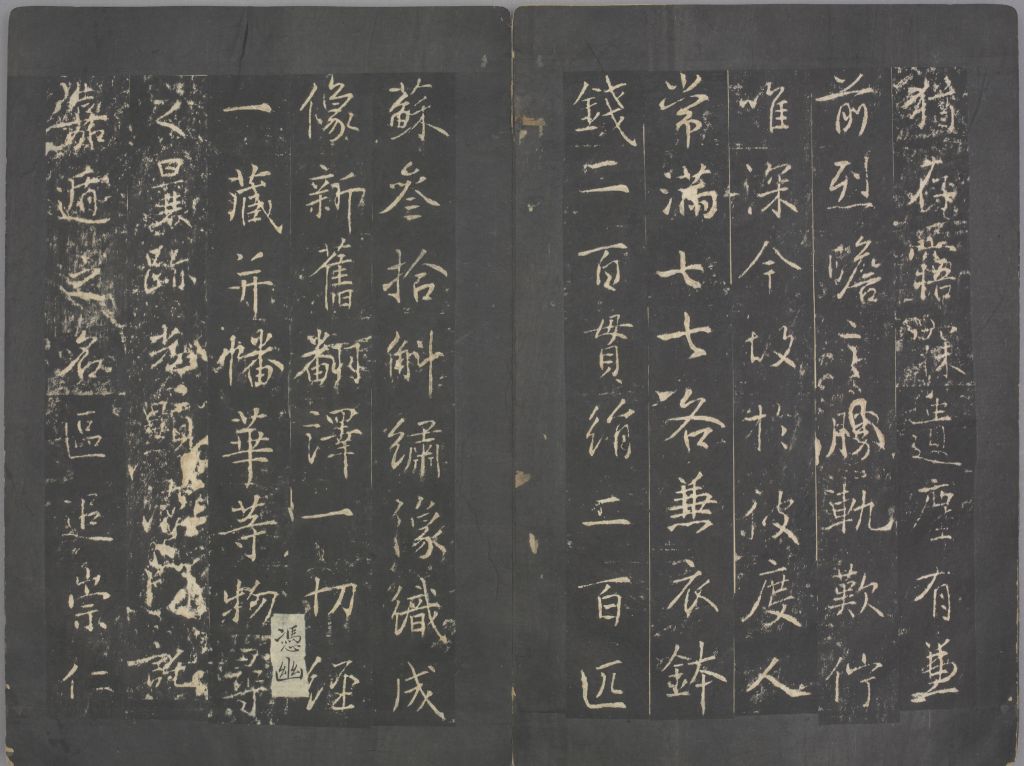 猶存悟有兼
前烈瞻言勝軌歎佇
唯深今故於彼度人
常滿七七各兼衣鉢
錢二百貫絹二百匹
蘇叄拾斛繡像織成
像新舊翻譯一切經
憑幽
一藏并幡華等物尋
之曩跡顯就
嘉遁之名區追崇仁